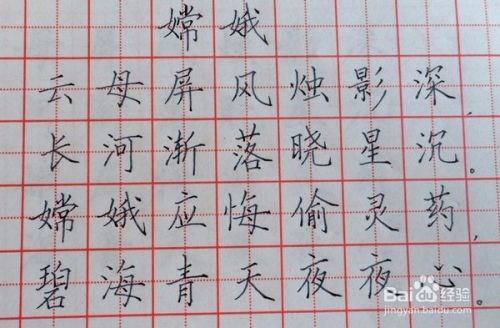 嫦娥
云母屏风烛影深，
长河渐落晓星沉。
嫦娥应悔偷灵药，
碧海青天夜夜心。
Baidu经验
jingyan.baidu.com